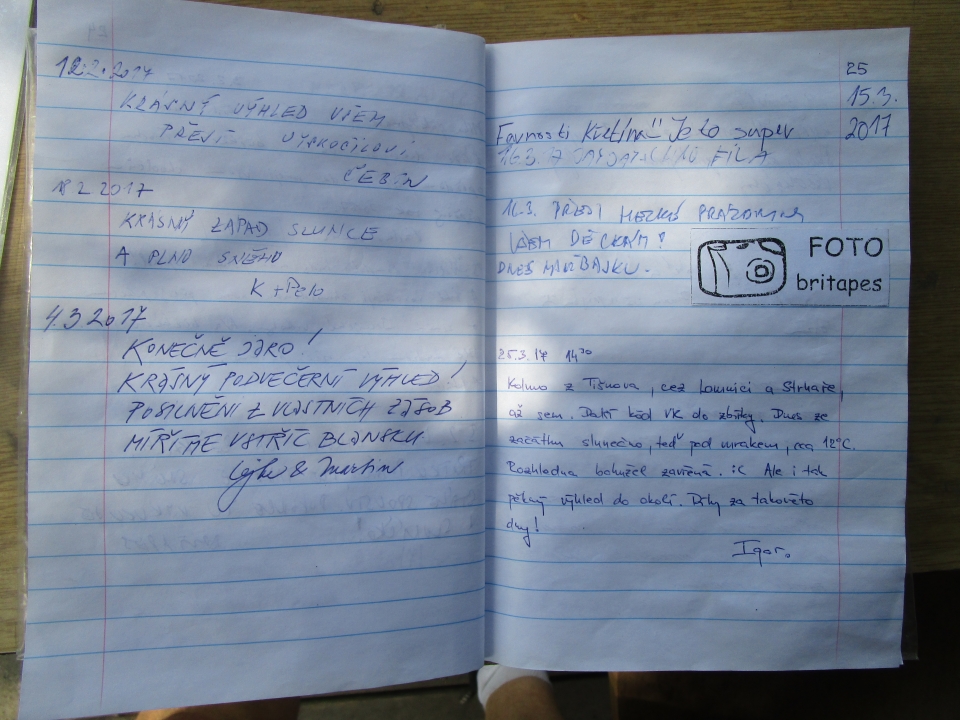 12.2.2017
KRÁSNÝ VÝHLED VŠEM
PŘEJÍ VYSKOČILOVI
ČEBÍN
18 2 2017
KRÁSNÝ ZÁPAD SLUNCE
A PLNO SNĚHU
K + Pelo
4.3 2017
KONEČNĚ JARO!
KRÁSNÝ PODVEČERNÍ VÝHLED!
POSILNĚNI Z VLASTNÍCH ZÁSOB
MÍŘÍME VSTŘÍC BLANSKU
& Martin
25
15.3.
2017
Je to super
16.3. A
16.3. PŘEJI HEZKÉ PRÁZDNINY
VŠEM DĚCKÁM!
DNES
FOTO
britapes
25.3.17 14³⁰
Kolmo z Tišnova, cez Lomnici a Strhaře,
až sem. Další kód VK do zbírky. Dnes ze
začátku slunečno, teď pod mrakem, cca 12°C.
Rozhledna bohužel zavřená. :C Ale i tak
pěkný výhled do okolí. Díky za takovéto
dny!
Igor.